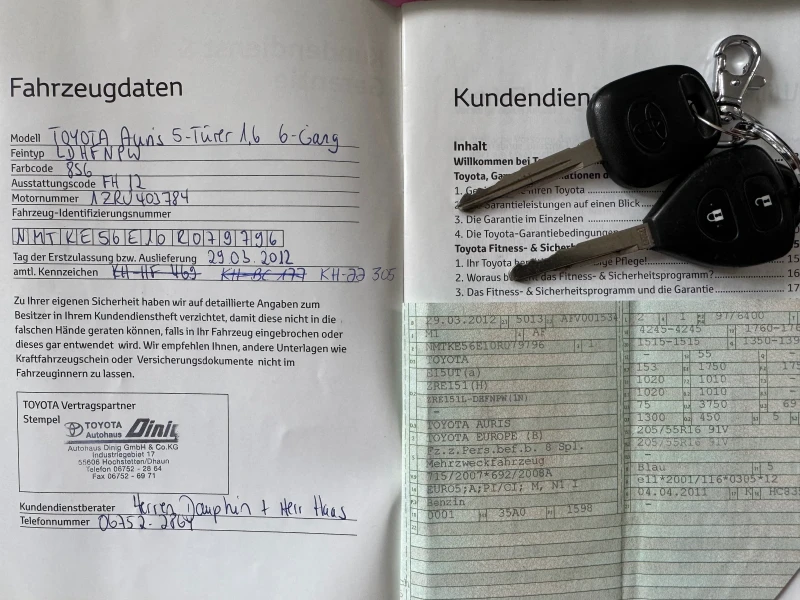 Fahrzeugdaten
Modell TOYOTA Auris 5-Türer 1,6 6-Gang
Feintyp LDHFNPW
Farbcode 8S6
Ausstattungscode FH 12
Motornummer 1ZRU403784
Fahrzeug-Identifizierungsnummer
NMTKE56E10R079796
Tag der Erstzulassung bzw. Auslieferung 29.03.2012
amtl. Kennzeichen KH-HF 469 KH-BC 177 KH-JJ 305
Zu Ihrer eigenen Sicherheit haben wir auf detaillierte Angaben zum
Besitzer in Ihrem Kundendienstheft verzichtet, damit diese nicht in die
falschen Hände geraten können, falls in Ihr Fahrzeug eingebrochen oder
dieses gar entwendet wird. Wir empfehlen Ihnen, andere Unterlagen wie
Kraftfahrzeugschein oder Versicherungsdokumente nicht im
Fahrzeuginnern zu lassen.
TOYOTA Vertragspartner
Stempel
TOYOTA
Autohaus Dinig
Autohaus Dinig GmbH & Co.KG
Industriegebiet 17
55606 Hochstetten/Dhaun
Telefon 06752 - 28 64
Fax 06752 - 69 71
Kundendienstberater Herren Dauphin + Herr Haas
Telefonnummer 06752-2864
Kundendien
Inhalt
Willkommen bei
Toyota, Gara
1. Ihren Toyota
Garantieleistungen auf einen Blick
3. Die Garantie im Einzelnen
4. Die Toyota-Garantiebedingungen
Toyota Fitness- & Sicherhei
1. Ihr Toyota Pflege! 15
2. Woraus das Fitness- & Sicherheitsprogramm? 16
3. Das Fitness- & Sicherheitsprogramm und die Garantie 17
29.03.2012 5013 AFV001534 2 4 1 9776400
M1 AF 4245-4245 1760-176
NMTKE56E10R079796 1 1515-1515 1350-139
TOYOTA - 55 -
S15UT(a) 153 1750 175
ZRE151(H) 1020 1010 -
ZRE151L-DHFNPW(1N) 1020 1010 -
- 75 3750 69
TOYOTA AURIS 1300 450 5
TOYOTA EUROPE (B) 205/55R16 91V
Fz.z.Pers.bef.b. 8 Spl. 205/55R16 91V
Mehrzweckfahrzeug -
715/2007*692/2008A Blau 5
EURO5;A;PI/CI; M, N1 I e11*2001/116*0305*12
Benzin 04.04.2011 K HC83
0001 35A0 1598 -